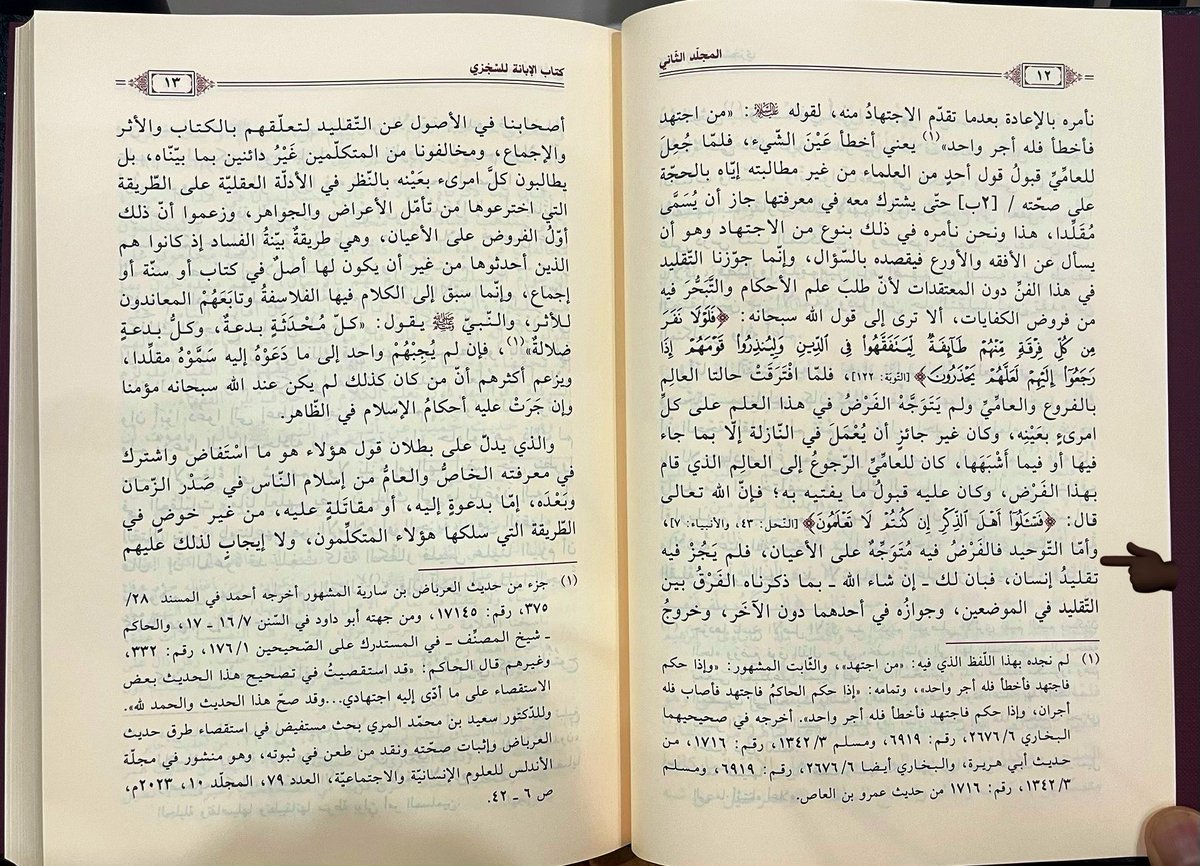 المجلّد الثّاني
١٢
نأمره بالإعادة بعدما تقدّم الاجتهادُ منه، لقوله ﵇: «من اجتهد
فأخطأ فله أجر واحد»(١) يعني أخطأ عَيْنَ الشّيء، فلمّا جُعِلَ
للعامِّيِّ قبولُ قول أحدٍ من العلماء من غير مطالبته إيّاه بالحجّة
على صحّته / [٢ب] حتّى يشترك معه في معرفتها جاز أن يُسَمَّى
مُقَلِّدا، هذا ونحن نأمره في ذلك بنوع من الاجتهاد وهو أن
يسأل عن الأفقه والأورع فيقصده بالسّؤال، وإنّما جوّزنا التّقليد
في هذا الفنِّ دون المعتقدات لأنّ طلبَ علم الأحكام والتَّبَحُّرَ فيه
من فروض الكفايات، ألا ترى إلى قول الله سبحانه: ﴿فَلَوْلَا نَفَرَ
مِن كُلِّ فِرْقَةٍ مِّنْهُمْ طَآئِفَةٌ لِّيَتَفَقَّهُوا۟ فِى ٱلدِّينِ وَلِيُنذِرُوا۟ قَوْمَهُمْ إِذَا
رَجَعُوٓا۟ إِلَيْهِمْ لَعَلَّهُمْ يَحْذَرُونَ﴾ [التَّوبَة: ١٢٢]، فلمّا افْتَرَقَتْ حالتا العالِم
بالفروع والعامِّيِّ ولم يَتَوَجَّهْ الفَرْضُ في هذا العلم على كلِّ
امرىءٍ بعَيْنِه، وكان غير جائزٍ أن يُعْمَلَ في النّازلة إلّا بما جاء
فيها أو فيما أَشْبَهَها، كان للعامِّيِّ الرّجوعُ إلى العالِم الذي قام
بهذا الفَرْض، وكان عليه قبولُ ما يفتيه به؛ فإنّ الله تعالى
قال: ﴿فَسْـَٔلُوٓا۟ أَهْلَ ٱلذِّكْرِ إِن كُنتُمْ لَا تَعْلَمُونَ﴾ [النّحل: ٤٣، والأنبياء: ٧]،
وأمّا التّوحيد فالفَرْضُ فيه مُتَوَجِّهٌ على الأعيان، فلم يَجُزْ فيه
تقليدُ إنسان، فبان لك - إن شاء الله - بما ذكرناه الفَرْقُ بين
التّقليد في الموضعين، وجوازُه في أحدهما دون الآخَر، وخروجُ
(١) لم نجده بهذا اللّفظ الذي فيه: «من اجتهد»، والثّابت المشهور: «وإذا حكم
فاجتهد فأخطأ فله أجر واحد»، وتمامه: «إذا حكم الحاكمُ فاجتهد فأصاب فله
أجران، وإذا حكم فاجتهد فأخطأ فله أجر واحد». أخرجه في صحيحيهما
البخاري ٢٦٧٦/٦، رقم: ٦٩١٩، ومسلم ١٣٤٢/٣، رقم: ١٧١٦، من
حديث أبي هريرة، والبخاري أيضا ٢٦٧٦/٦، رقم: ٦٩١٩، ومسلم
١٣٤٢/٣، رقم: ١٧١٦ من حديث عمرو بن العاص.
كتاب الإبانة للسّجْزي
١٣
أصحابنا في الأصول عن التّقليد لتعلّقهم بالكتاب والأثر
والإجماع، ومخالفونا من المتكلّمين غَيْرُ دائنين بما بيّنّاه، بل
يطالبون كلَّ امرىء بعَيْنه بالنّظر في الأدلّة العقليّة على الطّريقة
التي اخترعوها من تأمّل الأعراض والجواهر، وزعموا أنّ ذلك
أوّلُ الفروض على الأعيان، وهي طريقةٌ بيّنةُ الفساد إذ كانوا هم
الذين أحدثوها من غير أن يكون لها أصلٌ في كتاب أو سنّة أو
إجماع، وإنّما سبق إلى الكلام فيها الفلاسفةُ وتابَعَهُمْ المعاندون
للأثر، والنّبيّ ﷺ يقول: «كلّ مُحْدَثَةٍ بدعةٌ، وكلُّ بدعةٍ
ضلالةٌ»(١)، فإن لم يُجِبْهُمْ واحد إلى ما دَعَوْهُ إليه سَمَّوْهُ مقلِّدا،
ويزعم أكثرهم أنّ من كان كذلك لم يكن عند الله سبحانه مؤمنا
وإن جَرَتْ عليه أحكامُ الإسلام في الظّاهر.
والذي يدلّ على بطلان قول هؤلاء هو ما اسْتَفاض واشترك
في معرفته الخاصُّ والعامُّ من إسلام النّاس في صَدْر الزّمان
وبَعْدَه، إمّا بدعوةٍ إليه، أو مقاتَلةٍ عليه، من غير خوضٍ في
الطّريقة التي سلكها هؤلاء المتكلّمون، ولا إيجابٍ لذلك عليهم
(١) جزء من حديث العرباض بن سارية المشهور أخرجه أحمد في المسند ٢٨/
٣٧٥، رقم: ١٧١٤٥، ومن جهته أبو داود في السّنن ١٦/٧ - ١٧، والحاكم
- شيخ المصنِّف - في المستدرك على الصّحيحين ١٧٦/١، رقم: ٣٣٢،
وغيرهم قال الحاكم: «قد استقصيتُ في تصحيح هذا الحديث بعض
الاستقصاء على ما أدّى إليه اجتهادي...وقد صحّ هذا الحديث والحمد لله».
وللدّكتور سعيد بن محمّد المري بحث مستفيض في استقصاء طرق حديث
العرباض وإثبات صحّته ونقد من طعن في ثبوته، وهو منشور في مجلّة
الأندلس للعلوم الإنسانيّة والاجتماعيّة، العدد ٧٩، المجلّد ١٠، ٢٠٢٣م،
ص ٦ - ٤٢.